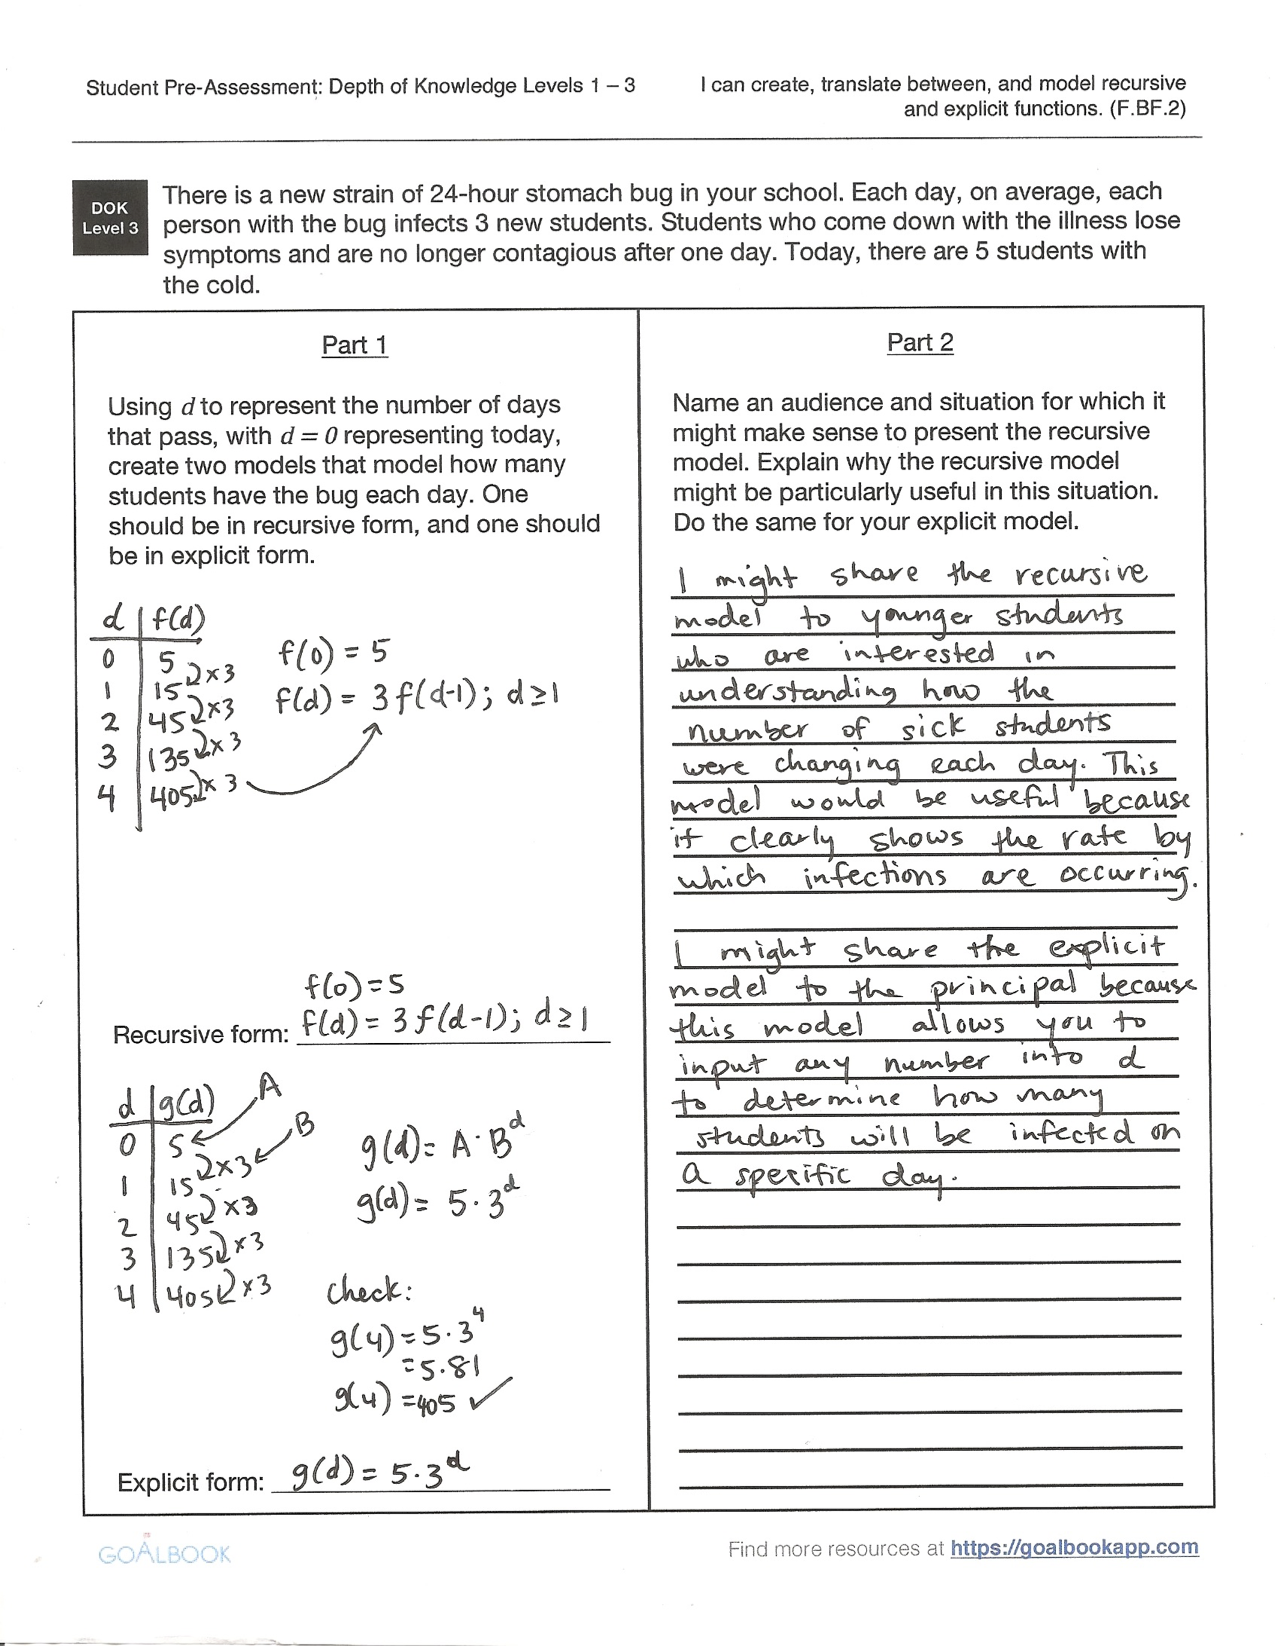 Student Pre-Assessment: Depth of Knowledge Levels 1 – 3
I can create, translate between, and model recursive
and explicit functions. (F.BF.2)
DOK
Level 3
There is a new strain of 24-hour stomach bug in your school. Each day, on average, each
person with the bug infects 3 new students. Students who come down with the illness lose
symptoms and are no longer contagious after one day. Today, there are 5 students with
the cold.
Part 1
Using d to represent the number of days
that pass, with d = 0 representing today,
create two models that model how many
students have the bug each day. One
should be in recursive form, and one should
be in explicit form.
d f(d)
0 5 x3
1 15 x3
2 45 x3
3 135 x3
4 405 x3
f(0) = 5
f(d) = 3f(d-1); d≥1
f(0)=5
Recursive form: f(d)= 3f(d-1); d≥1
d g(d) A
0 5 B
x3
1 15 x3
2 45 x3
3 135 x3
4 405
g(d)= A·B^d
g(d)= 5·3^d
Check:
g(4)=5·3^4
=5·81
g(4)=405 ✓
Explicit form: g(d)= 5·3^d
Part 2
Name an audience and situation for which it
might make sense to present the recursive
model. Explain why the recursive model
might be particularly useful in this situation.
Do the same for your explicit model.
I might share the recursive
model to younger students
who are interested in
understanding how the
number of sick students
were changing each day. This
model would be useful because
it clearly shows the rate by
which infections are occurring.
I might share the explicit
model to the principal because
this model allows you to
input any number into d
to determine how many
students will be infected on
a specific day.
GOALBOOK
Find more resources at https://goalbookapp.com